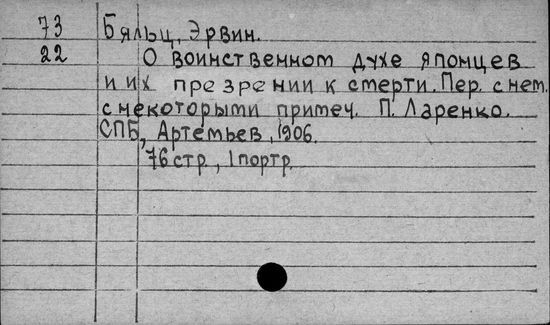 73 Бяльц, Эрвин.
22 О воинственном духе японцев
и их презрении к смерти. Пер. с нем.
с некоторыми примеч. П. Ларенко.
СПБ, Артемьев, 1906.
76 стр., 1 портр.